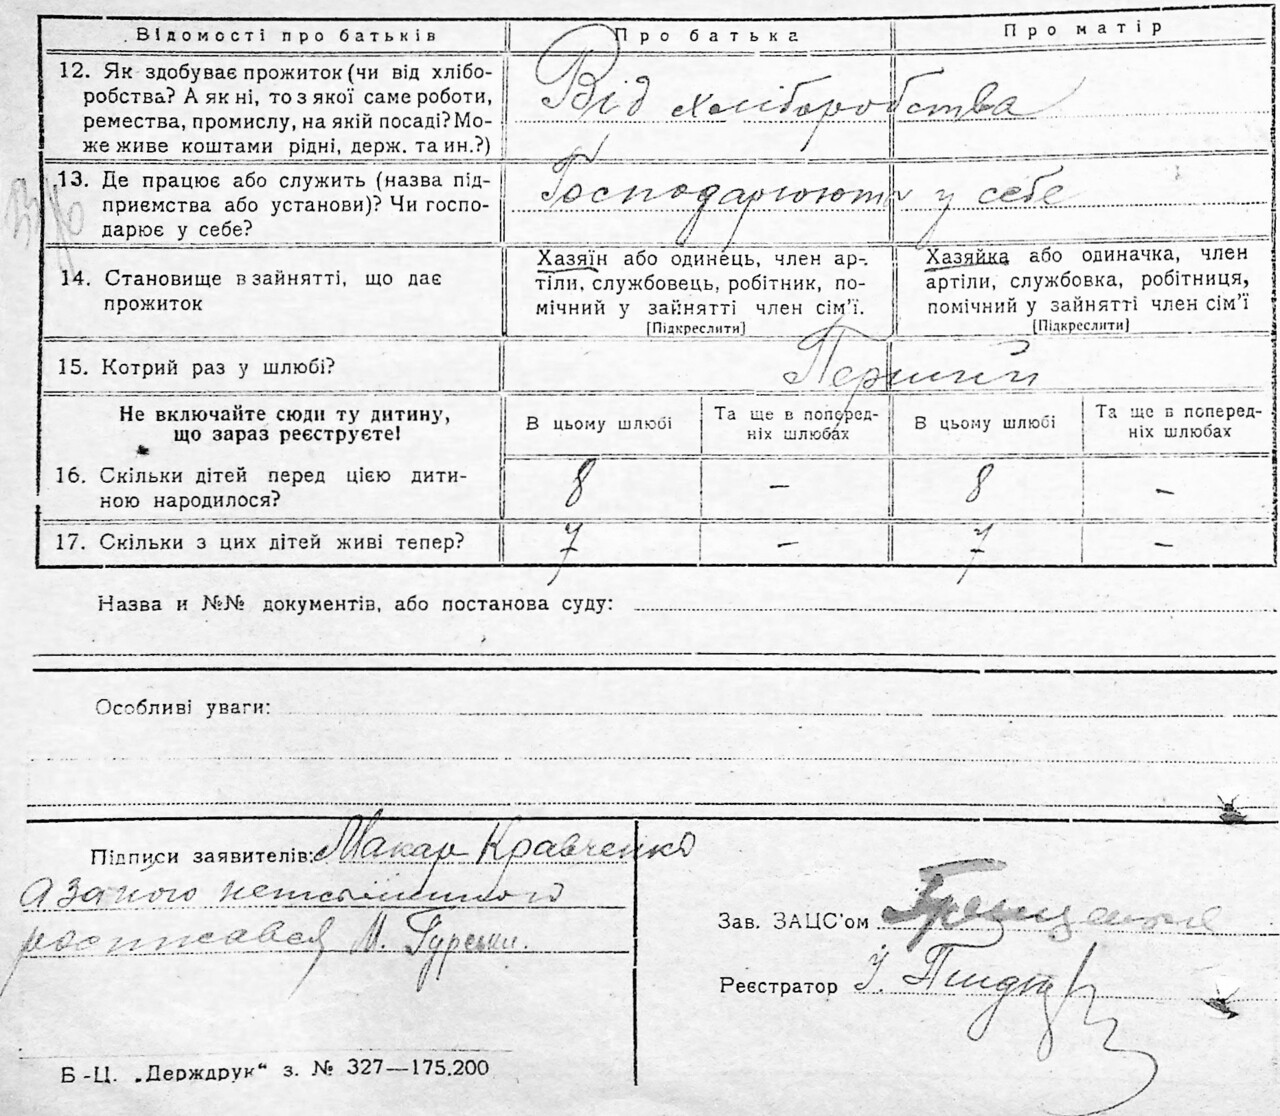 Відомості про батьків Про батька Про матір
12. Як здобуває прожиток (чи від хлібо-
робства? А як ні, то з якої саме роботи,
ремества, промислу, на якій посаді? Мо-
же живе коштами рідні, держ. та ин.?)
Від хліборобства
13. Де працює або служить (назва під-
приємства або установи)? Чи госпо-
дарює у себе?
Господарюють у себе
14. Становище в зайнятті, що дає
прожиток
Хазяїн або одинець, член ар-
тіли, службовець, робітник, по-
мічний у зайнятті член сім'ї.
[Підкреслити]
Хазяйка або одиначка, член
артіли, службовка, робітниця,
помічний у зайнятті член сім'ї
[Підкреслити]
15. Котрий раз у шлюбі? Перший
Не включайте сюди ту дитину,
що зараз реєструєте!
В цьому шлюбі
Та ще в поперед-
ніх шлюбах
В цьому шлюбі
Та ще в поперед-
ніх шлюбах
16. Скільки дітей перед цією дити-
ною народилося?
8 – 8 –
17. Скільки з цих дітей живі тепер? 7 – 7 –
Назва и №№ документів, або постанова суду:
Особливі уваги:
Підписи заявителів: Макар Кравченко
а за його неписьменного
росписався М. Гурськи.
Зав. ЗАЦС'ом
Реєстратор
Б-Ц. „Держдрук“ з. № 327—175.200